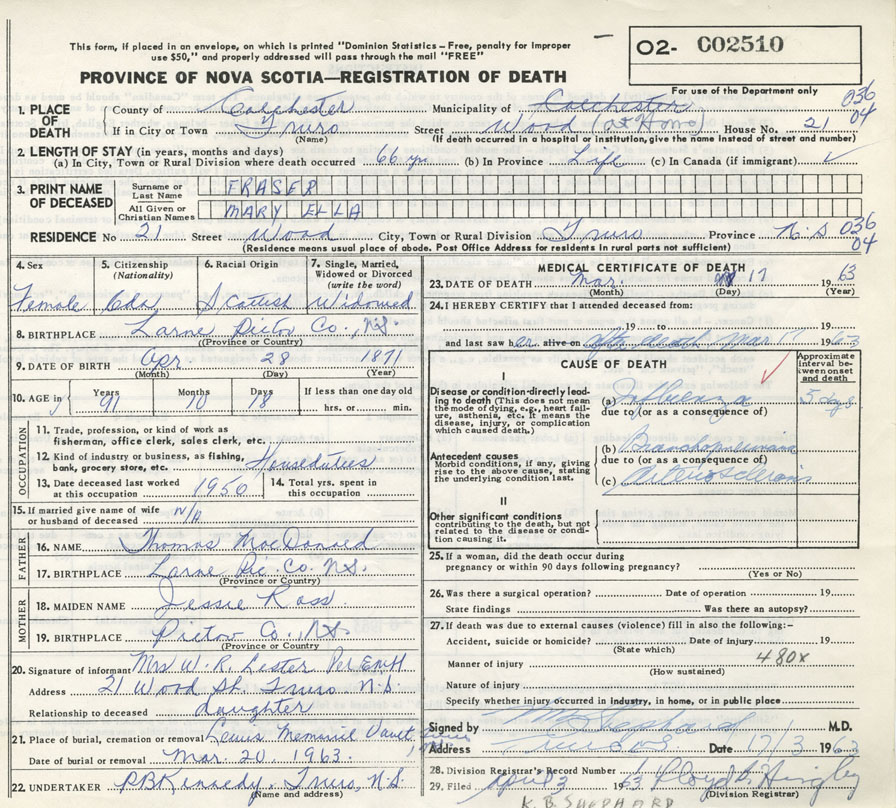 This form, if placed in an envelope, on which is printed "Dominion Statistics – Free, penalty for improper
use $50," and properly addressed will pass through the mail "FREE"
02- C02510
PROVINCE OF NOVA SCOTIA—REGISTRATION OF DEATH
For use of the Department only
036
04
1. PLACE OF DEATH { County of Colchester Municipality of Colchester
If in City or Town Truro (Name) Street Wood (at Home) House No. 21
(If death occurred in a hospital or institution, give the name instead of street and number)
2. LENGTH OF STAY (in years, months and days)
(a) In City, Town or Rural Division where death occurred 66 yrs (b) In Province Life (c) In Canada (if immigrant) ✓
3. PRINT NAME OF DECEASED { Surname or Last Name FRASER
All Given or Christian Names MARY ELLA
RESIDENCE No 21 Street Wood City, Town or Rural Division Truro Province N.S 036
04
(Residence means usual place of abode. Post Office Address for residents in rural parts not sufficient)
4. Sex 5. Citizenship (Nationality) 6. Racial Origin 7. Single, Married, Widowed or Divorced (write the word)
Female Cda Scottish Widowed
8. BIRTHPLACE Larne Pictou Co., N.S.
(Province or Country)
9. DATE OF BIRTH Apr 28 1871
(Month) (Day) (Year)
10. AGE Years Months Days If less than one day old
91 10 18 hrs. or min.
OCCUPATION
11. Trade, profession, or kind of work as
fisherman, office clerk, sales clerk, etc.
12. Kind of industry or business, as fishing,
bank, grocery store, etc. Houseduties
13. Date deceased last worked
at this occupation 1950
14. Total yrs. spent in
this occupation
15. If married give name of wife
or husband of deceased N/A
FATHER
16. NAME Thomas MacDonald
17. BIRTHPLACE Larne Pic. Co. N.S.
(Province or Country)
MOTHER
18. MAIDEN NAME Jessie Ross
19. BIRTHPLACE Pictou Co., N.S.
(Province or Country
20. Signature of informant Mrs W. R. Lester Per EMH
Address 21 Wood St. Truro, N.S.
Relationship to deceased daughter
21. Place of burial, cremation or removal Lewis Memorial Vault
Date of burial or removal Mar. 20, 1963.
22. UNDERTAKER P B Kennedy, Truro, N.S.
(Name and address)
MEDICAL CERTIFICATE OF DEATH
23. DATE OF DEATH Mar. 17 1963
(Month) (Day) (Year)
24. I HEREBY CERTIFY that I attended deceased from:
19 to 19
and last saw her alive on after death Mar 17 1963
CAUSE OF DEATH
Approximate interval between onset and death
I
Disease or condition-directly leading to death (This does not mean the mode of dying, e.g., heart failure, asthenia, etc. It means the disease, injury, or complication which caused death.)
(a) Influenza 5 days
due to (or as a consequence of)
(b) Bronchopneumonia
Antecedent causes
Morbid conditions, if any, giving rise to the above cause, stating the underlying condition last.
due to (or as a consequence of)
(c) Arteriosclerosis
II
Other significant conditions
contributing to the death, but not related to the disease or condition causing it.
25. If a woman, did the death occur during
pregnancy or within 90 days following pregnancy?
(Yes or No)
26. Was there a surgical operation? Date of operation 19
State findings Was there an autopsy?
27. If death was due to external causes (violence) fill in also the following:-
Accident, suicide or homicide? Date of injury 19
(State which)
480x
Manner of injury
(How sustained)
Nature of injury
Specify whether injury occurred in industry, in home, or in public place
Signed by M.D.
Address Truro NS Date 17/3 1963
28. Division Registrar's Record Number
29. Filed April 3 1963 Lloyd B. Hingley
(Division Registrar)
K. B. SHEPHARD